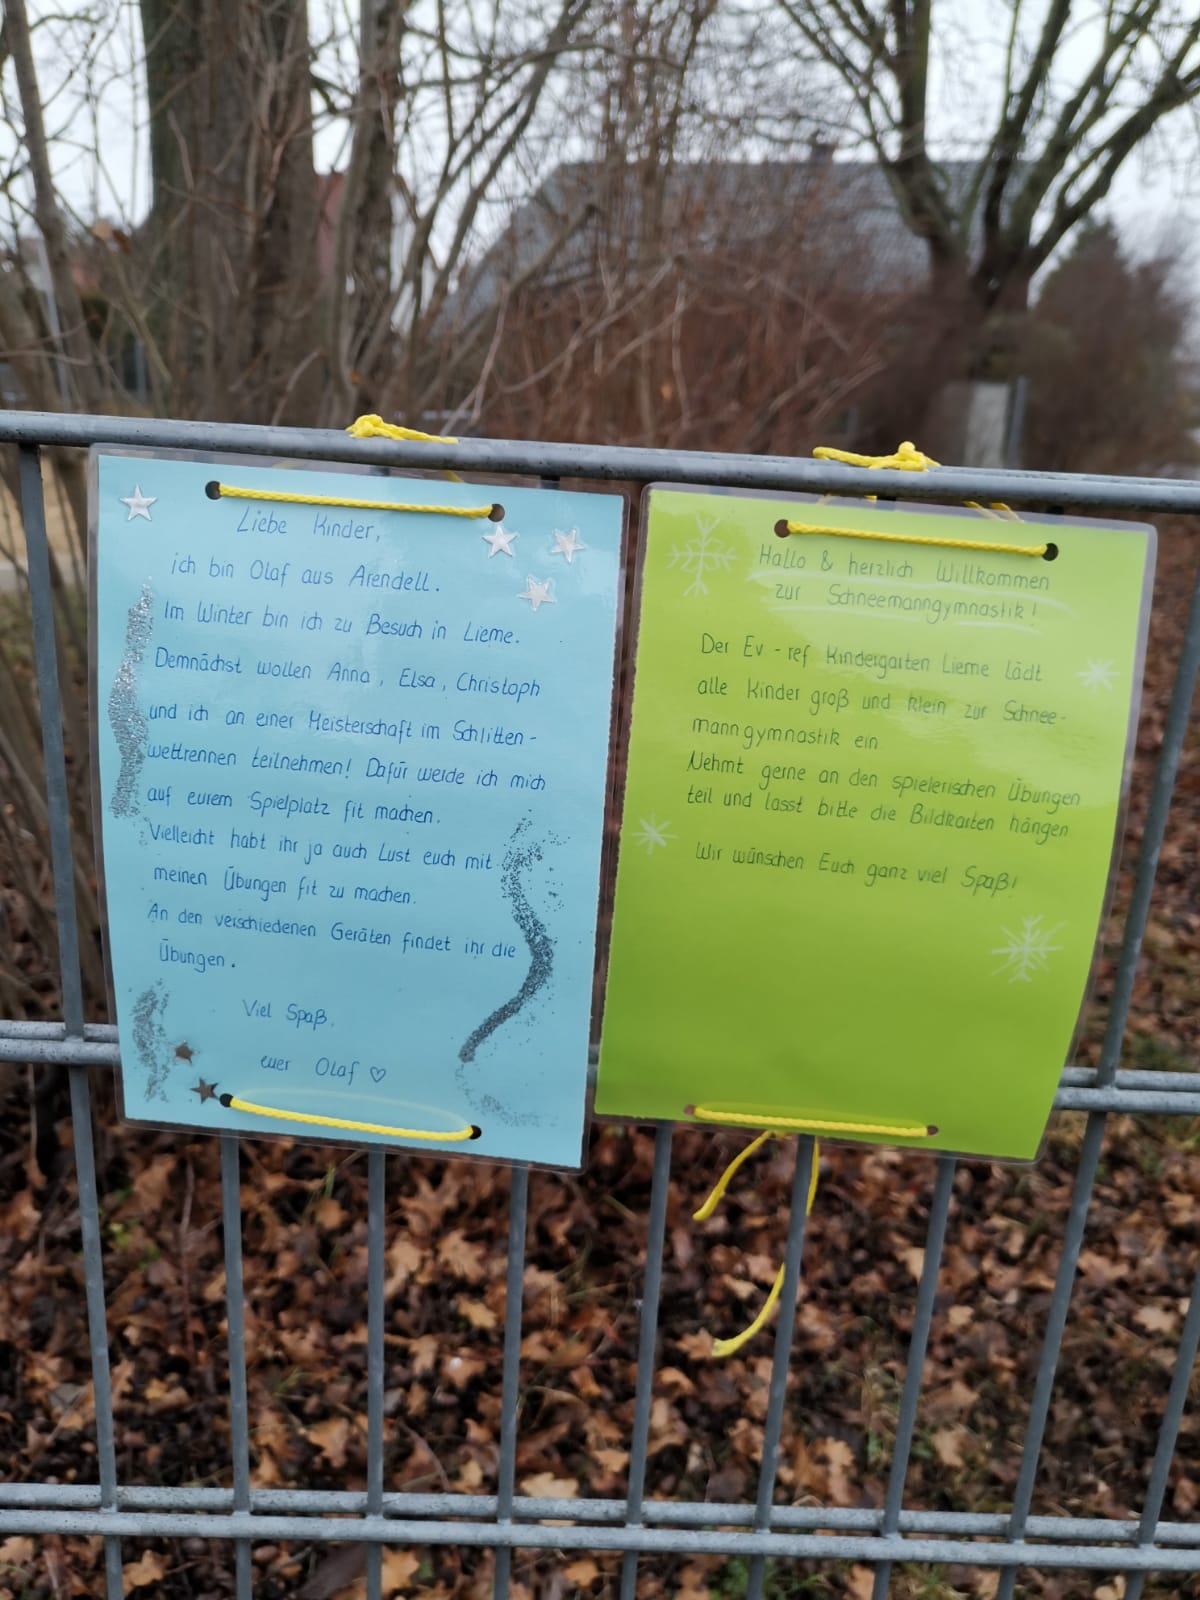 Liebe Kinder,
ich bin Olaf aus Arendell.
Im Winter bin ich zu Besuch in Lieme.
Demnächst wollen Anna, Elsa, Christoph
und ich an einer Meisterschaft im Schlitten-
wettrennen teilnehmen! Dafür werde ich mich
auf eurem Spielplatz fit machen.
Vielleicht habt ihr ja auch Lust euch mit
meinen Übungen fit zu machen.
An den verschiedenen Geräten findet ihr die
Übungen.
Viel Spaß,
euer Olaf ♡
Hallo & herzlich Willkommen
zur Schneemanngymnastik!
Der Ev-ref Kindergarten Lieme lädt
alle Kinder groß und klein zur Schnee-
manngymnastik ein
Nehmt gerne an den spielerischen Übungen
teil und lasst bitte die Bildkarten hängen
Wir wünschen Euch ganz viel Spaß!